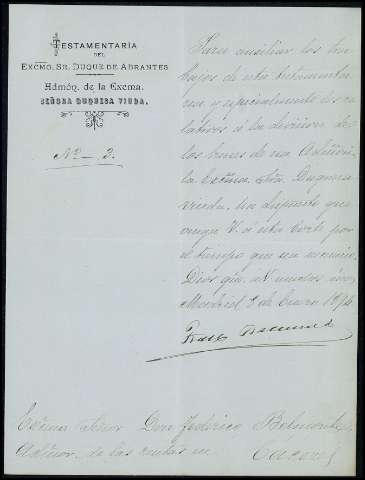 TESTAMENTARÍA
DEL
EXCMO. SR. DUQUE DE ABRANTES
Admóq. de la Excma.
SEÑORA DUQUESA VIUDA.
Nº - 3.
Para auxiliar los tra
bajos de esta testamenta
ria y especialmente los re
lativos á la division de
los bienes de esa Admon.
la Excma. Sra. Duquesa
viuda, ha dispuesto que
venga V. á esta Corte por
el tiempo que sea necesario.
Dios gue. á V. muchos años
Madrid 8 de Enero
Excmo Señor Don Federico Belmonte,
Admor. de las rentas en Caceres